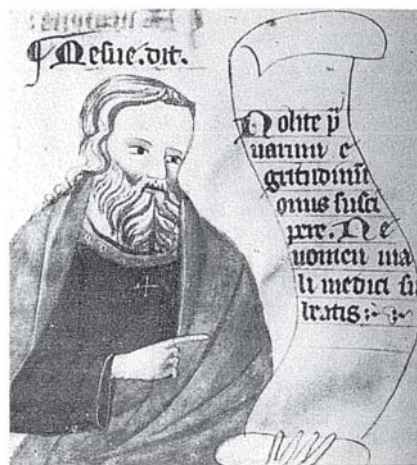 Mesue. dit.
Nolite p̄
uarum e
gritudinū
omus susci
pere. Ne
nomen ma
li medici su
bratis :